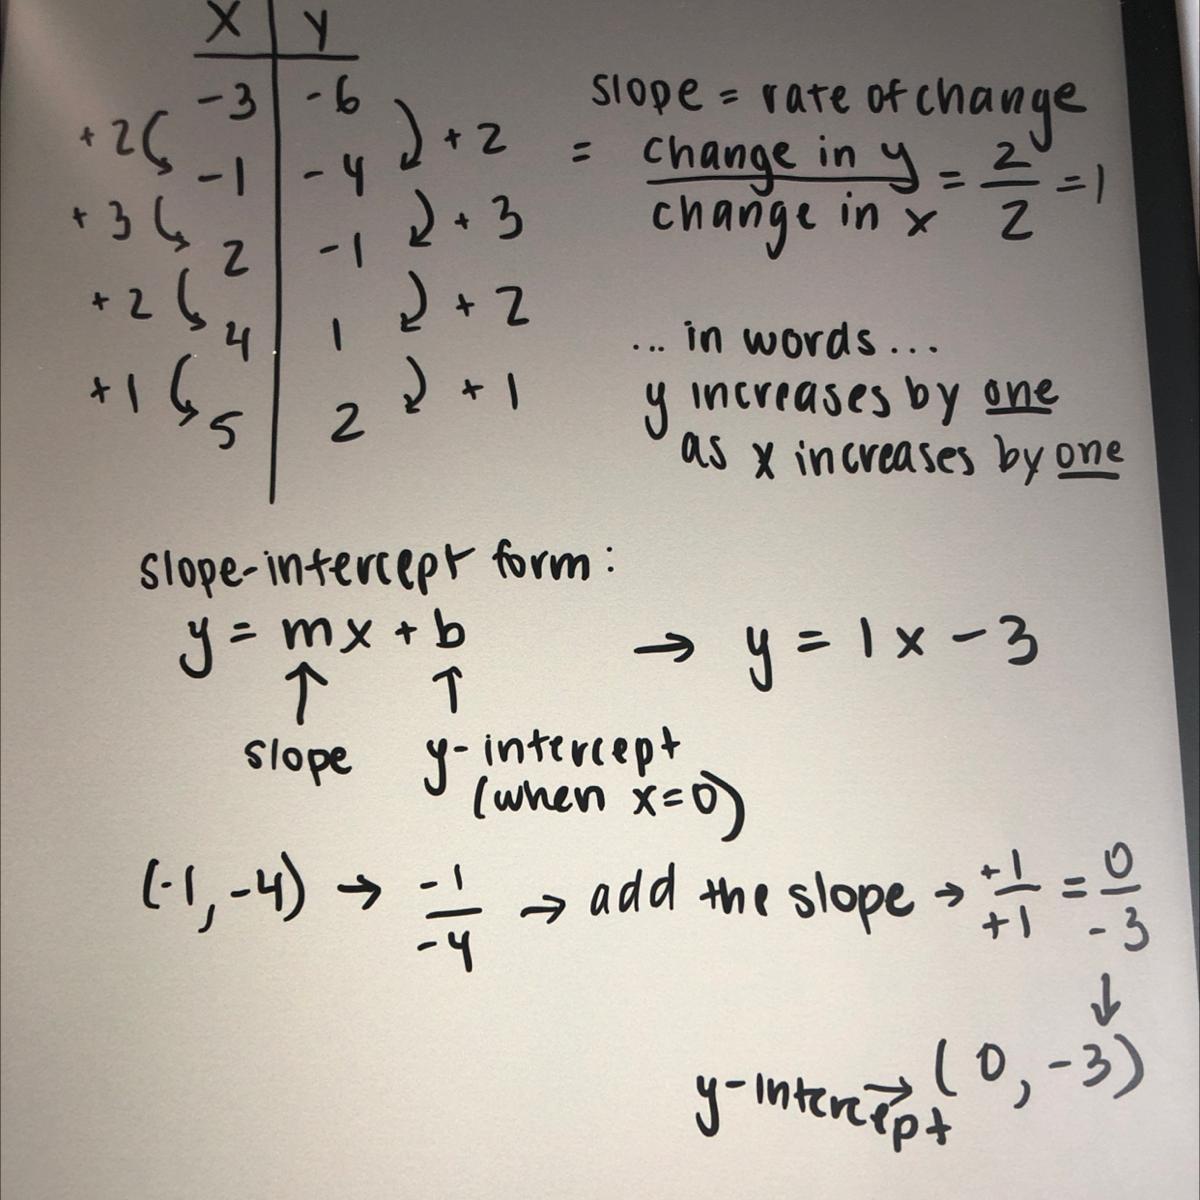 x y
-3 -6
+2 +2
-1 -4
+3 +3
2 -1
+2 +2
4 1
+1 +1
5 2
slope = rate of change
= change in y / change in x = 2/2 = 1
... in words...
y increases by one
as x increases by one
slope-intercept form:
y = mx + b → y = 1x - 3
↑ ↑
slope y-intercept
(when x=0)
(-1, -4) → -1/-4 → add the slope → +1/+1 = 0/-3
↓
y-intercept → (0, -3)